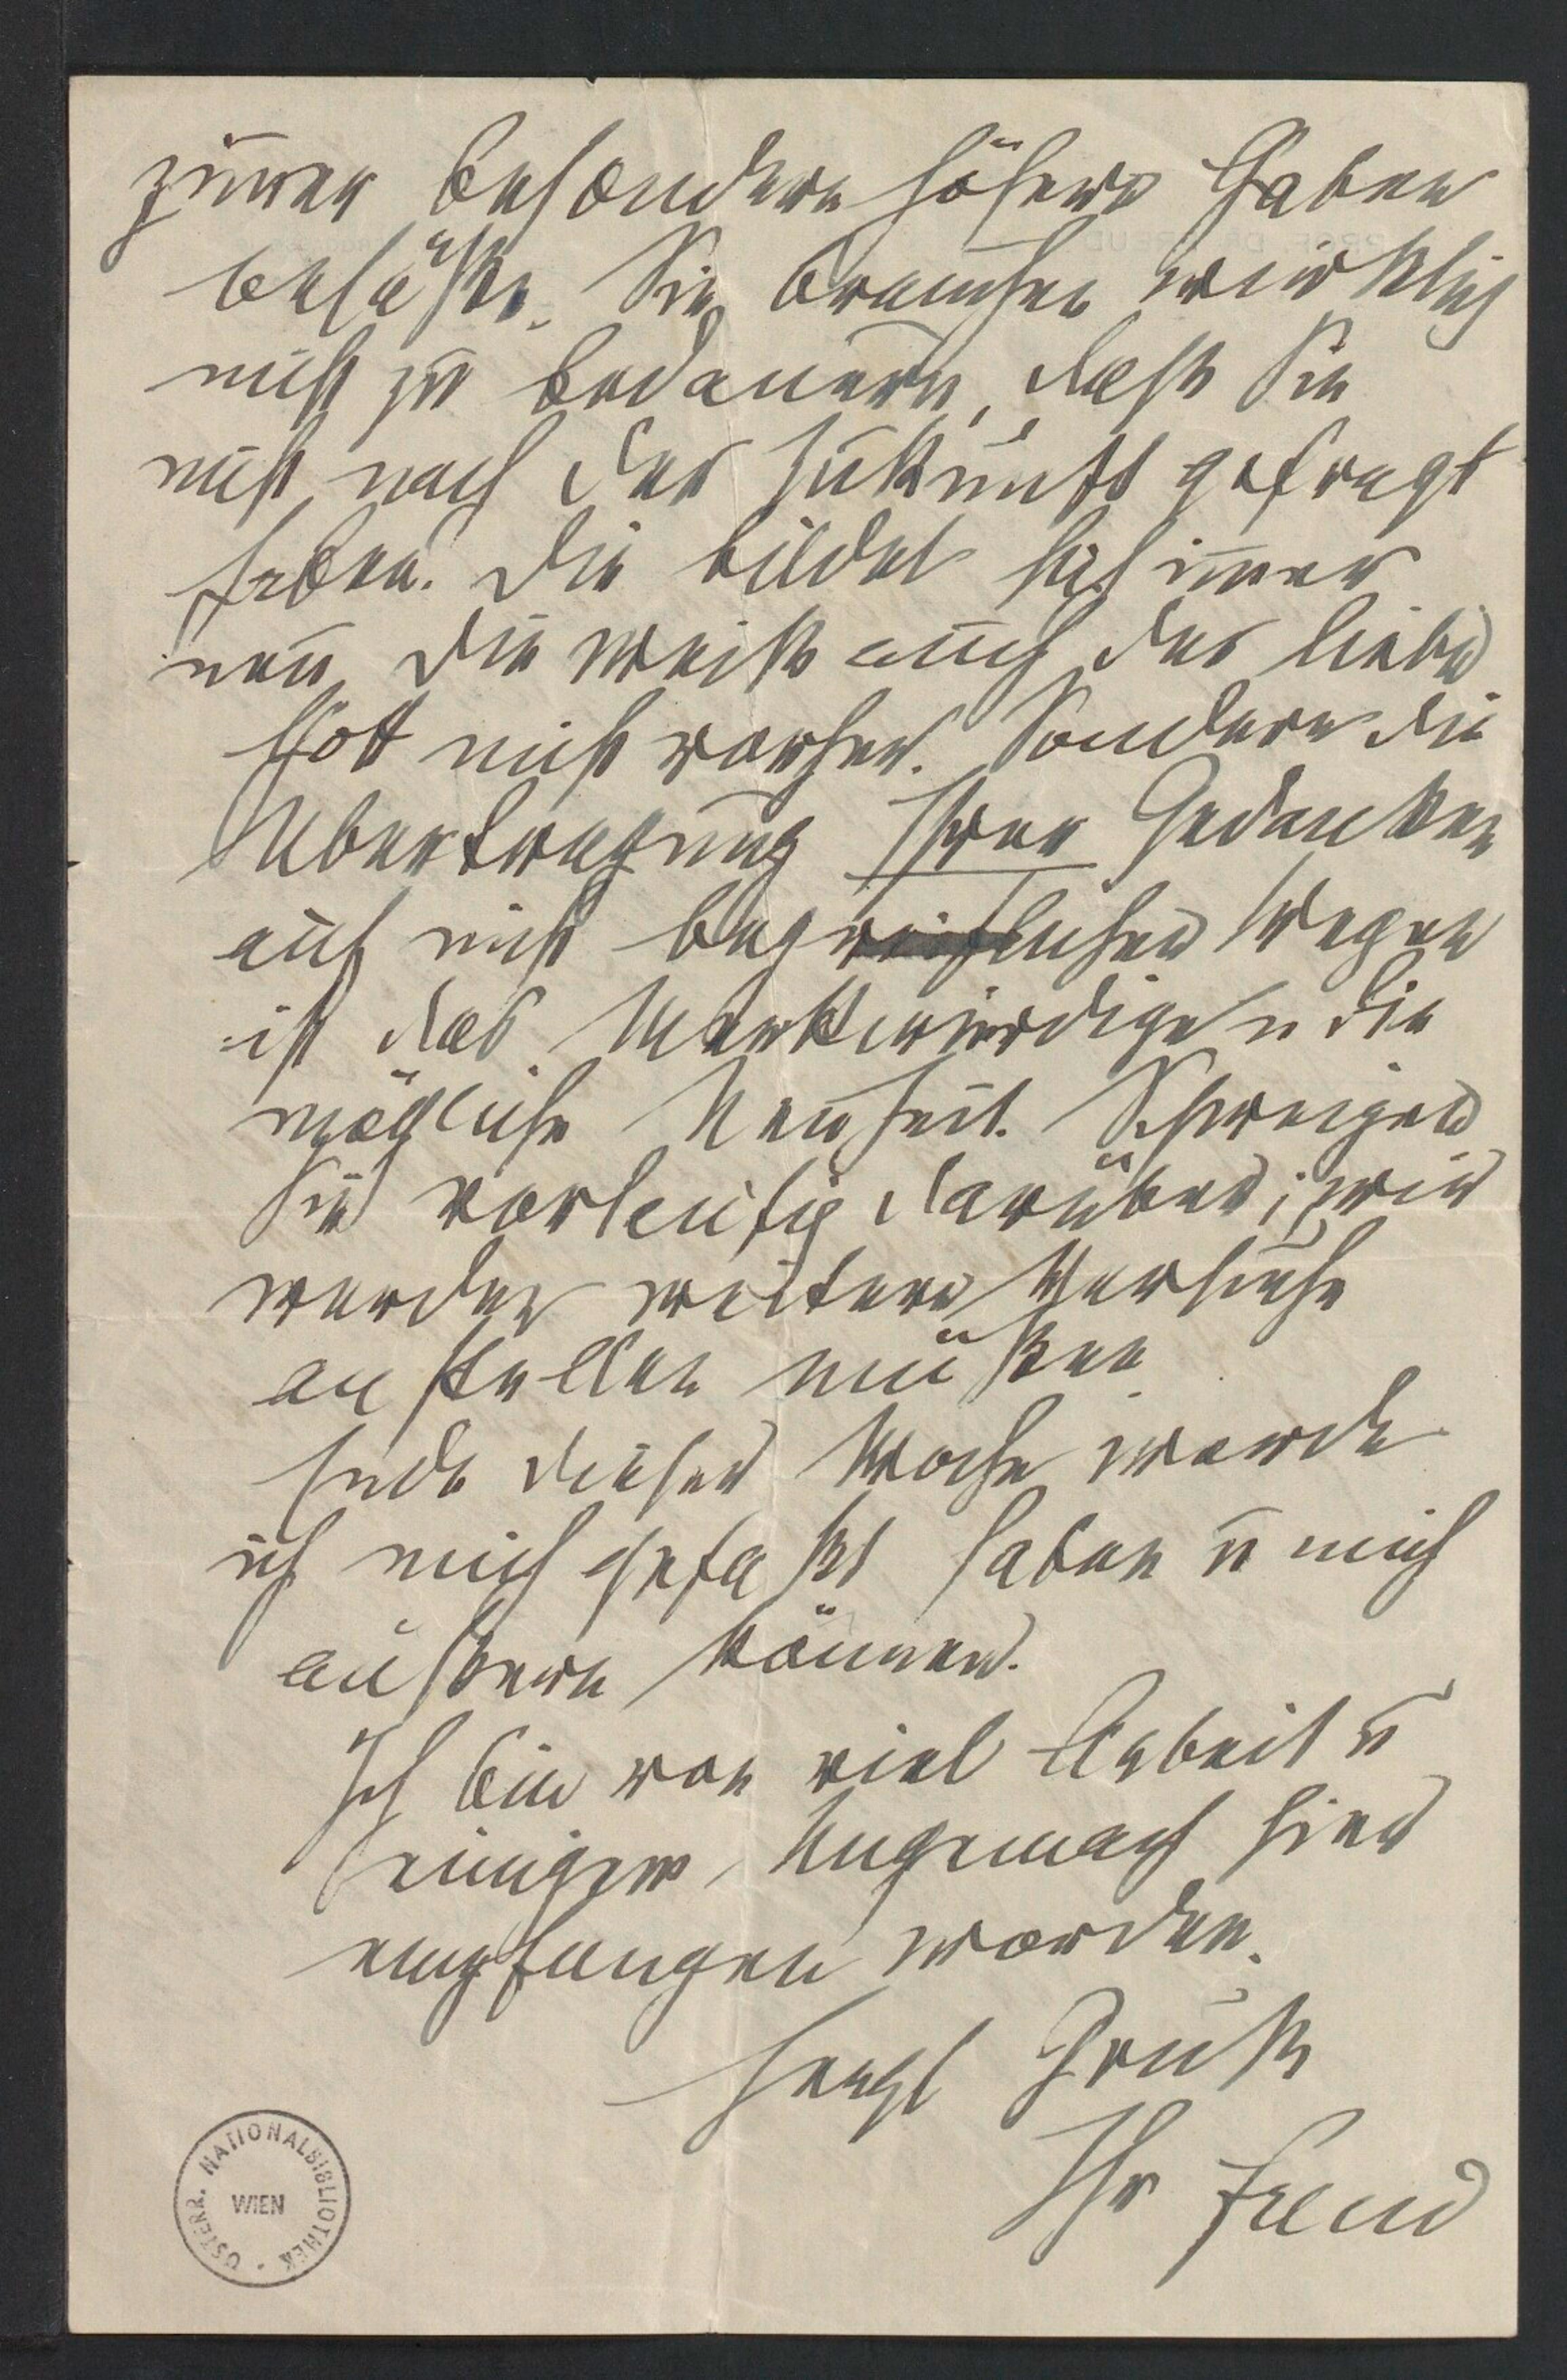 immer besondere höhere Gaben
besäße. Sie brauchen wirklich
nicht zu bedauern, daß Sie
nicht nach der Zukunft gefragt
haben. Die bildet sich immer
neu, die weiß auch der liebe
Gott nicht vorher. Sondern die
Übertragung Ihrer Gedanken
auf nicht begreiflichen Wegen
ist das Merkwürdige u die
mögliche Neuheit. Schweigen
Sie vorläufig darüber; wir
werden weitere Versuche
anstellen müßen
Ende dieser Woche werde
ich mich gefaßt haben u mich
äußern können.
Ich bin von viel Arbeit u
einigem Ungemach hier
empfangen worden.
Herzl Gruß
Ihr Freud
ÖSTERR. NATIONALBIBLIOTHEK · WIEN